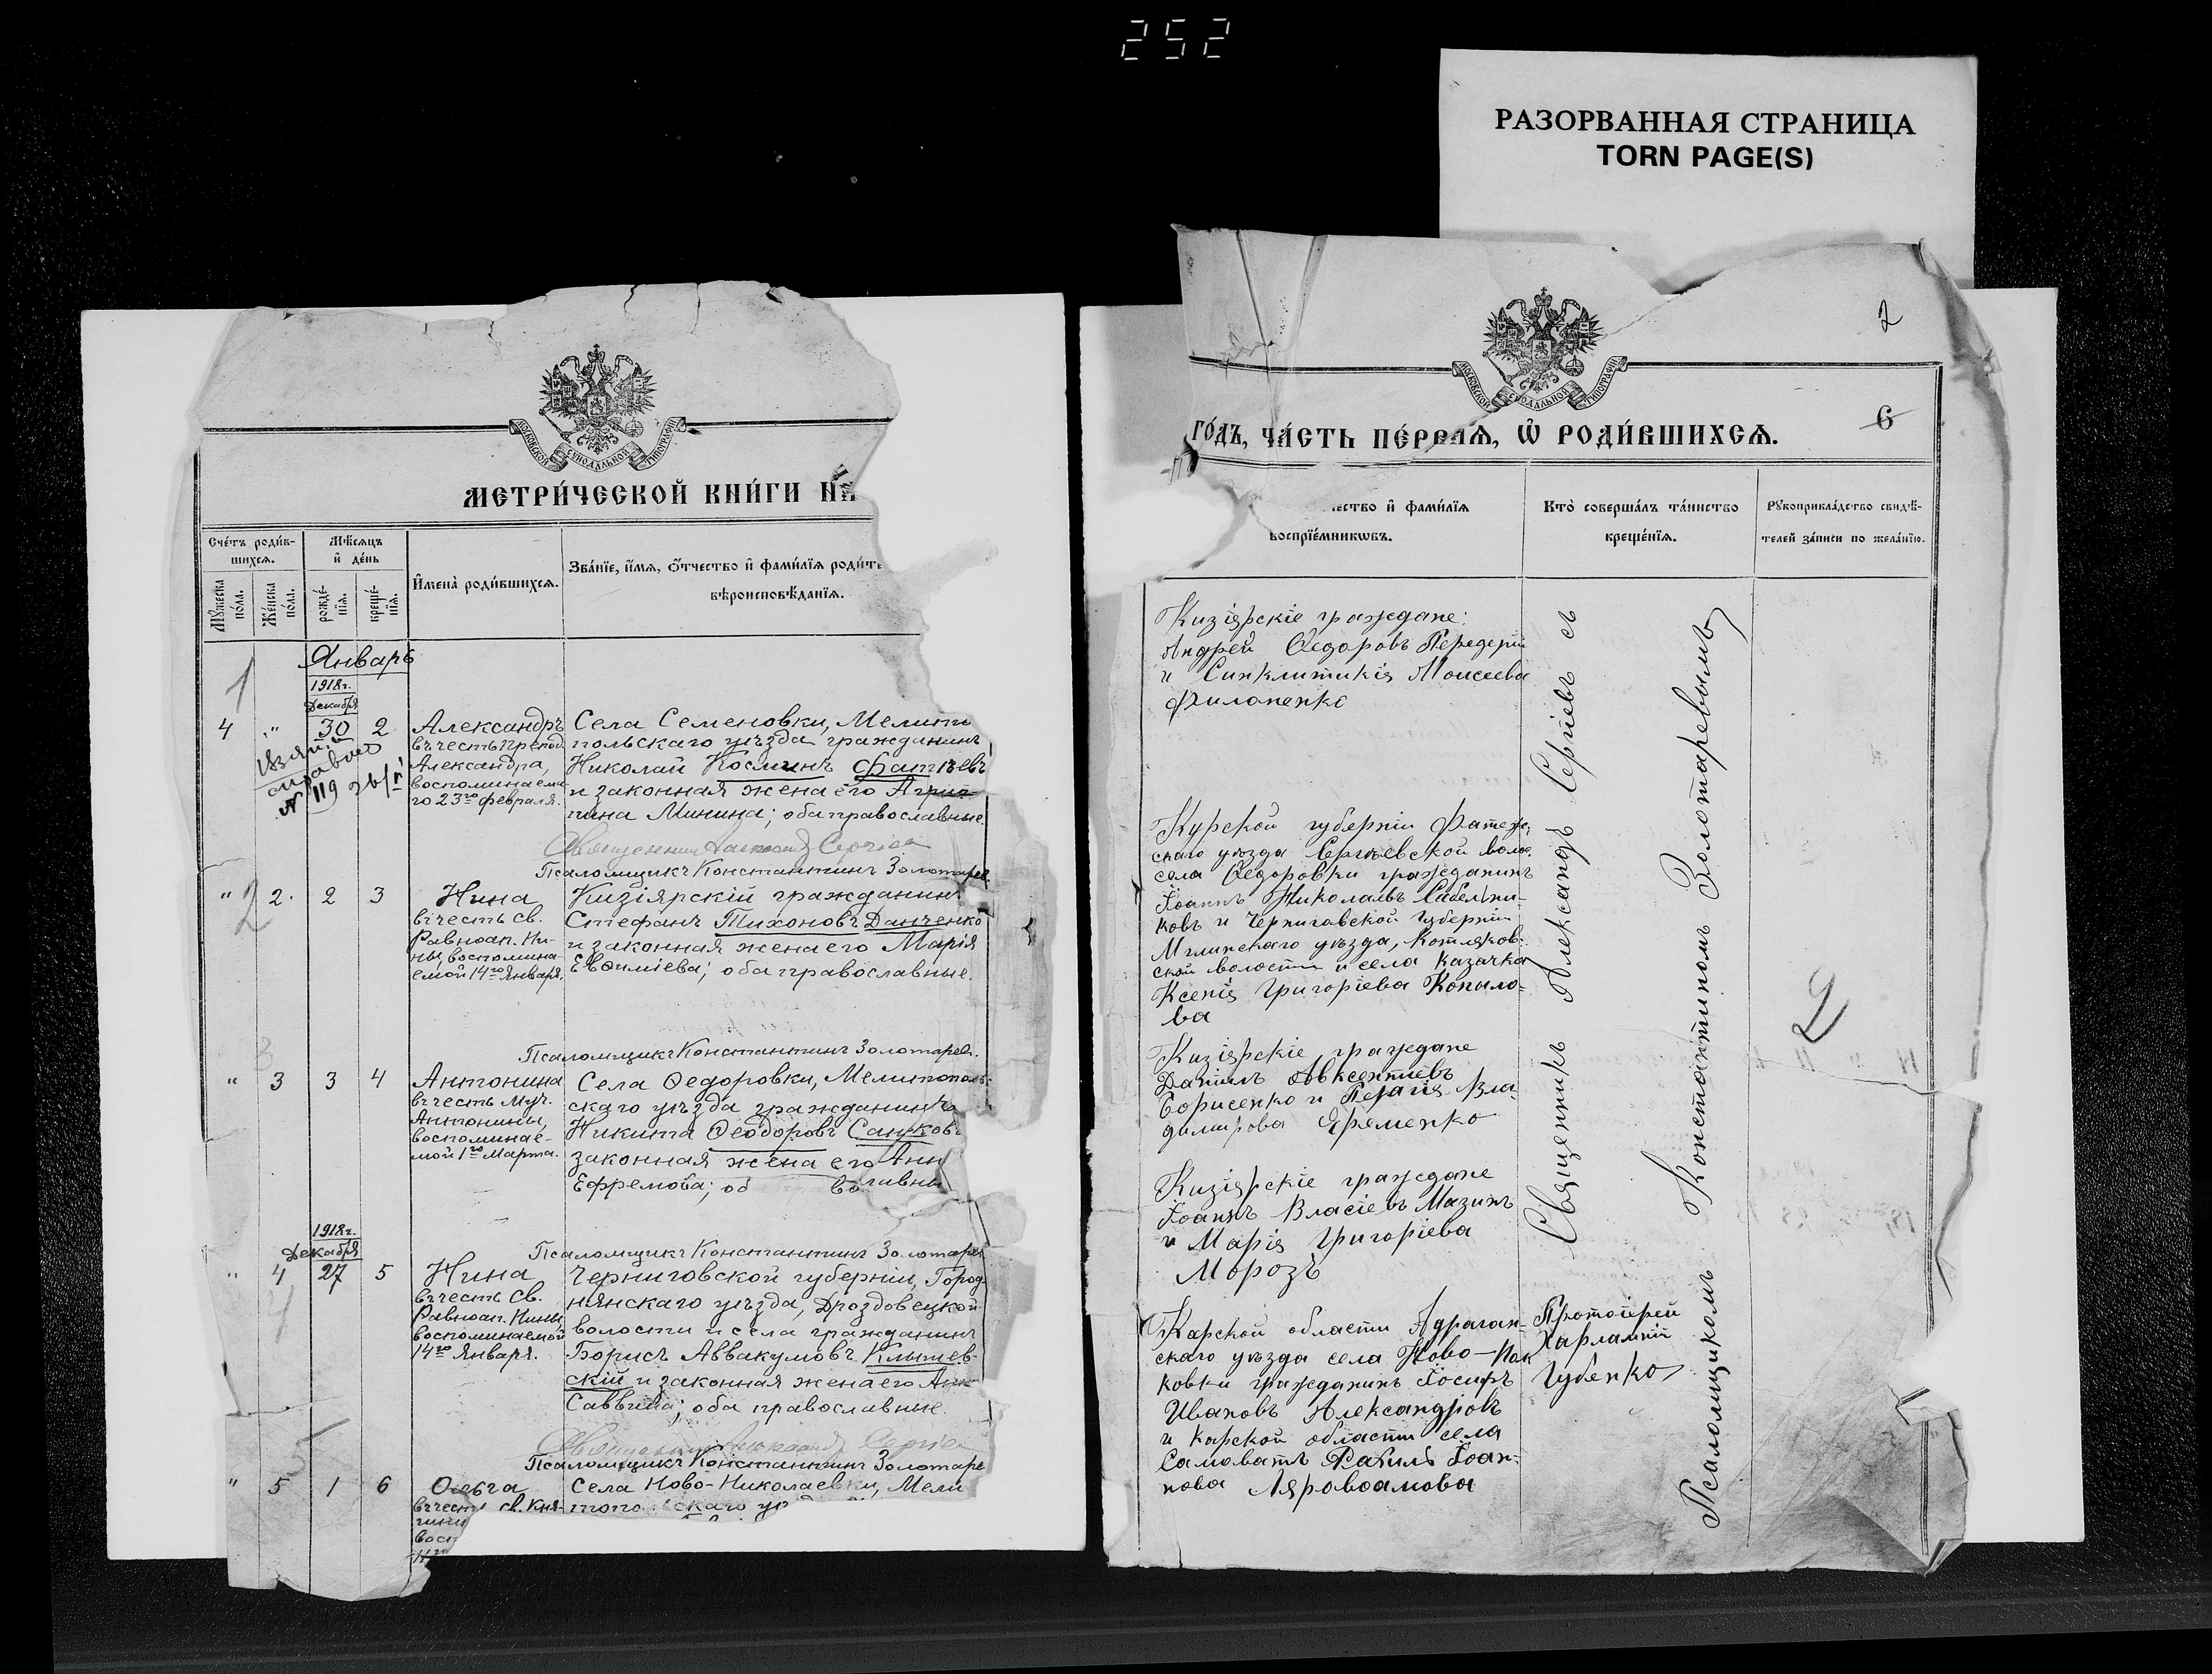 252
РАЗОРВАННАЯ СТРАНИЦА
TORN PAGE(S)
МОСКОВСКОЙ СѴНОДАЛЬНОЙ ТИПОГРАФІИ
МЕТРИ́ЧЕСКОЙ КНИ́ГИ НА
Сче́тъ роди́в-
шихсѧ.
Мѣ́сѧцъ
и҆ де́нь
Мꙋ́жеска
по́ла.
Же́нска
по́ла.
рожде́-
нїѧ.
креще́-
нїѧ.
И҆мена̀ роди́вшихсѧ.
Зва́нїе, и҆́мѧ, ѻ҆́тчество и҆ фами́лїѧ роди́те
вѣроисповѣ́данїѧ.
Январь
1
1918г.
Декабря
4 " 30 2
Александръ
въ честь Препод.
Александра,
воспоминаема-
го 23го февраля.
№ 119
Села Семеновки, Мелито
польскаго уѣзда гражданинъ
Николай Косминъ Фатѣевъ
и законная жена его Агрип-
пина Минина; оба православные.
Священникъ Александръ Сергіев
Псаломщикъ Константинъ Золотарев
" 2 2. 2 3
Нина
въ честь св.
Равноап. Ни-
ны, воспомина-
емой 14го Января.
Кизіярскій гражданинъ
Стефанъ Тихоновъ Данченко
и законная жена его Марія
Евѳиміева; оба православные.
Псаломщикъ Константинъ Золотарев.
" 3 3 4
Антонина
въ честь Муч.
Антонины,
воспоминае-
мой 1го Марта.
Села Ѳедоровки, Мелитополь-
скаго уѣзда гражданинъ
Никита Ѳеодоровъ
законная жена его Анн
Ефремова; об во лавны
1918г.
Декабря
Псаломщикъ Константинъ Золотарев
" 4 27 5
4
Нина
въ честь Св.
Равноап. Нины,
воспоминаемой
14го Января.
Черниговской губерніи, Город-
нянскаго уѣзда, Дроздовецкой
волости и села гражданинъ
Борисъ Аввакумовъ Клышев-
скій и законная жена его Анн
Саввина; оба православные.
Священникъ Александръ Сергіев
Псаломщикъ Константинъ Золотаре
5
" 5 1 6
Ольга
въ честь св. Кня-
гини
восп
11го
Села Ново-Николаевки, Мели
топо скаго уѣ
2
МОСКОВСКОЙ СѴНОДАЛЬНОЙ ТИПОГРАФІИ
6
ГО́ДЪ, ЧА́СТЬ ПЕ́РВАѦ, Ѡ҆ РОДИ́ВШИХСѦ.
чество и҆ фами́лїѧ
воспрїе́мникѡвъ.
Кто̀ соверша́лъ та́инство
креще́нїѧ.
Рꙋкоприкла́дство свидѣ́-
телей за́писи по жела́нїю.
Кизіярскіе граждане:
Андрей Ѳедоровъ Передерій
и Синклитикія Моисеева
Филоненко
Курской губерніи Фатеж-
скаго уѣзда Сергѣевской воло.
села Ѳедоровки гражданинъ
Іоаннъ Николаевъ Сабельни-
ковъ и Черниговской губерніи
Мглинскаго уѣзда, Котляков-
ской волости и села Казачка
Ксенія Григоріева Копыло-
ва
Кизіярскіе граждане
Даніилъ Авксентіевъ
Борисенко и Пелагія Вла-
димирова Яременко
Кизіярскіе граждане
Іоаннъ Власіевъ Мазинъ
и Марія Григоріева
Морозъ
Карской области Адраган-
скаго уѣзда села Ново-Пок
ковки гражданинъ Іосифъ
Ивановъ Александровъ
и Карской области села
Саловатъ Рахиль Іоан-
нова
Священникъ Александръ Сергіевъ съ
Псаломщикомъ Константиномъ Золотаревымъ
Протоіерей
Харлампій
Губенко
2